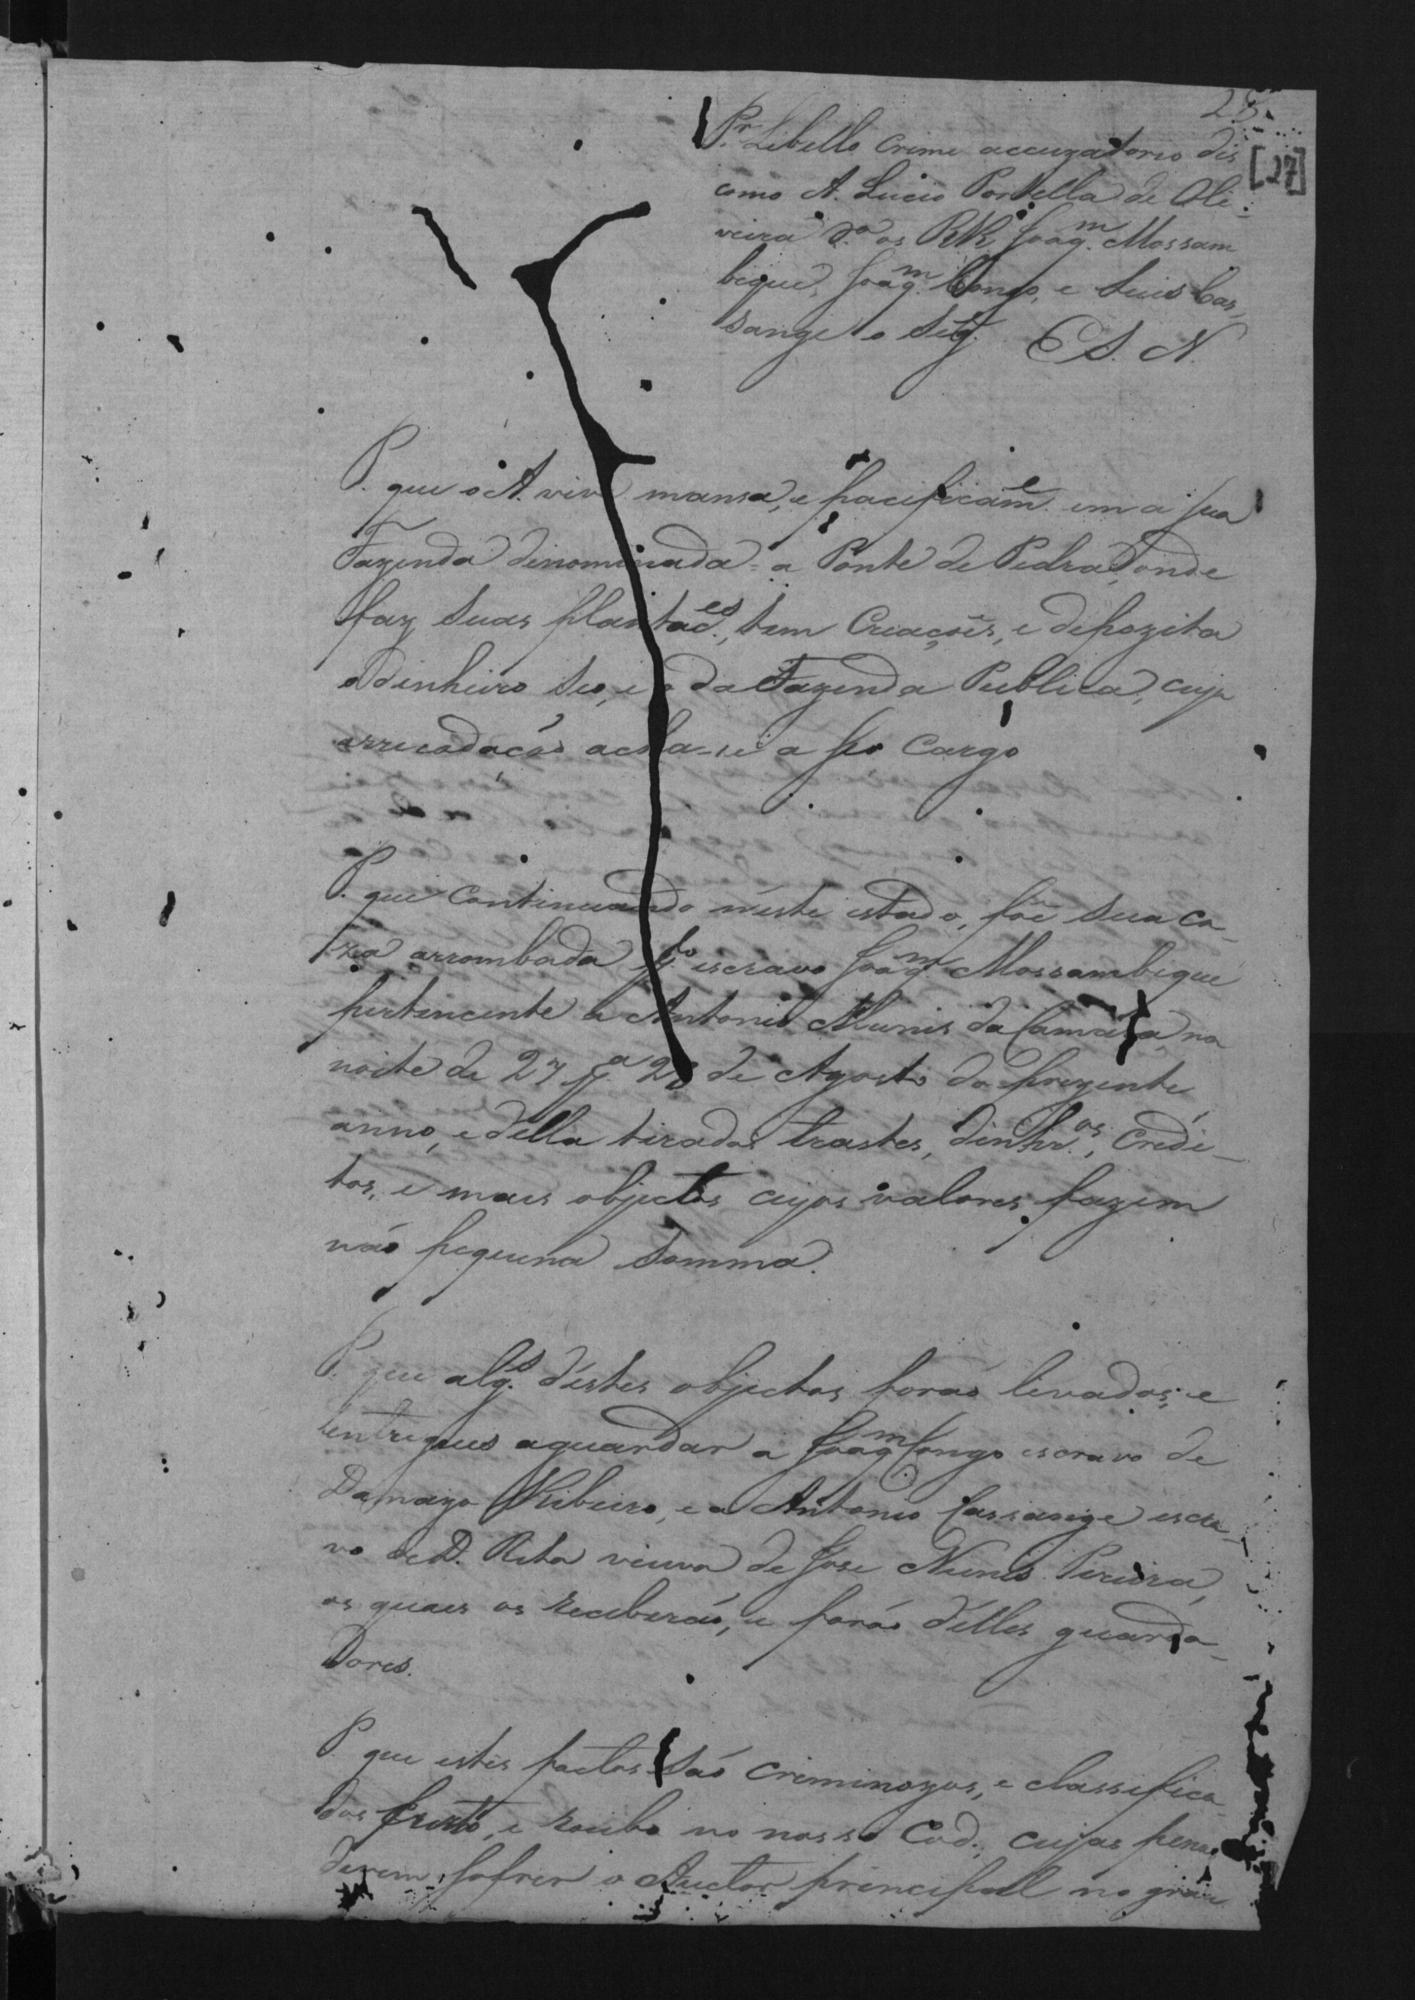 28
[27]
Pr. Libello crime accuzatorio dis
como A. Lucio Portella de Oli-
veira Ca. os RR. Joaqm. Mossam
beque, Joaqm. Congo, e Luis Cas
sange o Seg.
E S. N.
P. que o A. vive mansa, e pacificame. em a sua
Fazenda dinominada = a Ponte de Pedra, onde
faz suas plantaçes., tem Creaçoes, e depozita
o dinheiro seo, e o da Fazenda Publica, cuja
arrecadação acha-se a seo Cargo
P. que continuando n'este estado, foi sua ca-
za arrombada plo. escravo Joaqm. Mossambique
pertencente a Antonio Munis da Camara, na
noite de 27 pa. 28 de Agosto do prezente
anno, e d'ella tirados trastes, dinhros., credi-
tos, e mais objectos cujos valores fazem
não pequena somma.
P. que algs. d'estes objectos forão levados, e
entregues aguardar a Joaqm. Congo escravo de
Damazo Ribeiro, e a Antonio Cassange escra-
vo de D. Rita viuva de Jose Nunes Pereira,
os quaes os receberão, e forão d'elles guarda-
dores.
P. que estes factos são criminozos, e classifica-
dos furto, e roubo no nosso Cod., cujas penas
devem sofrer o Auctor principal no grau